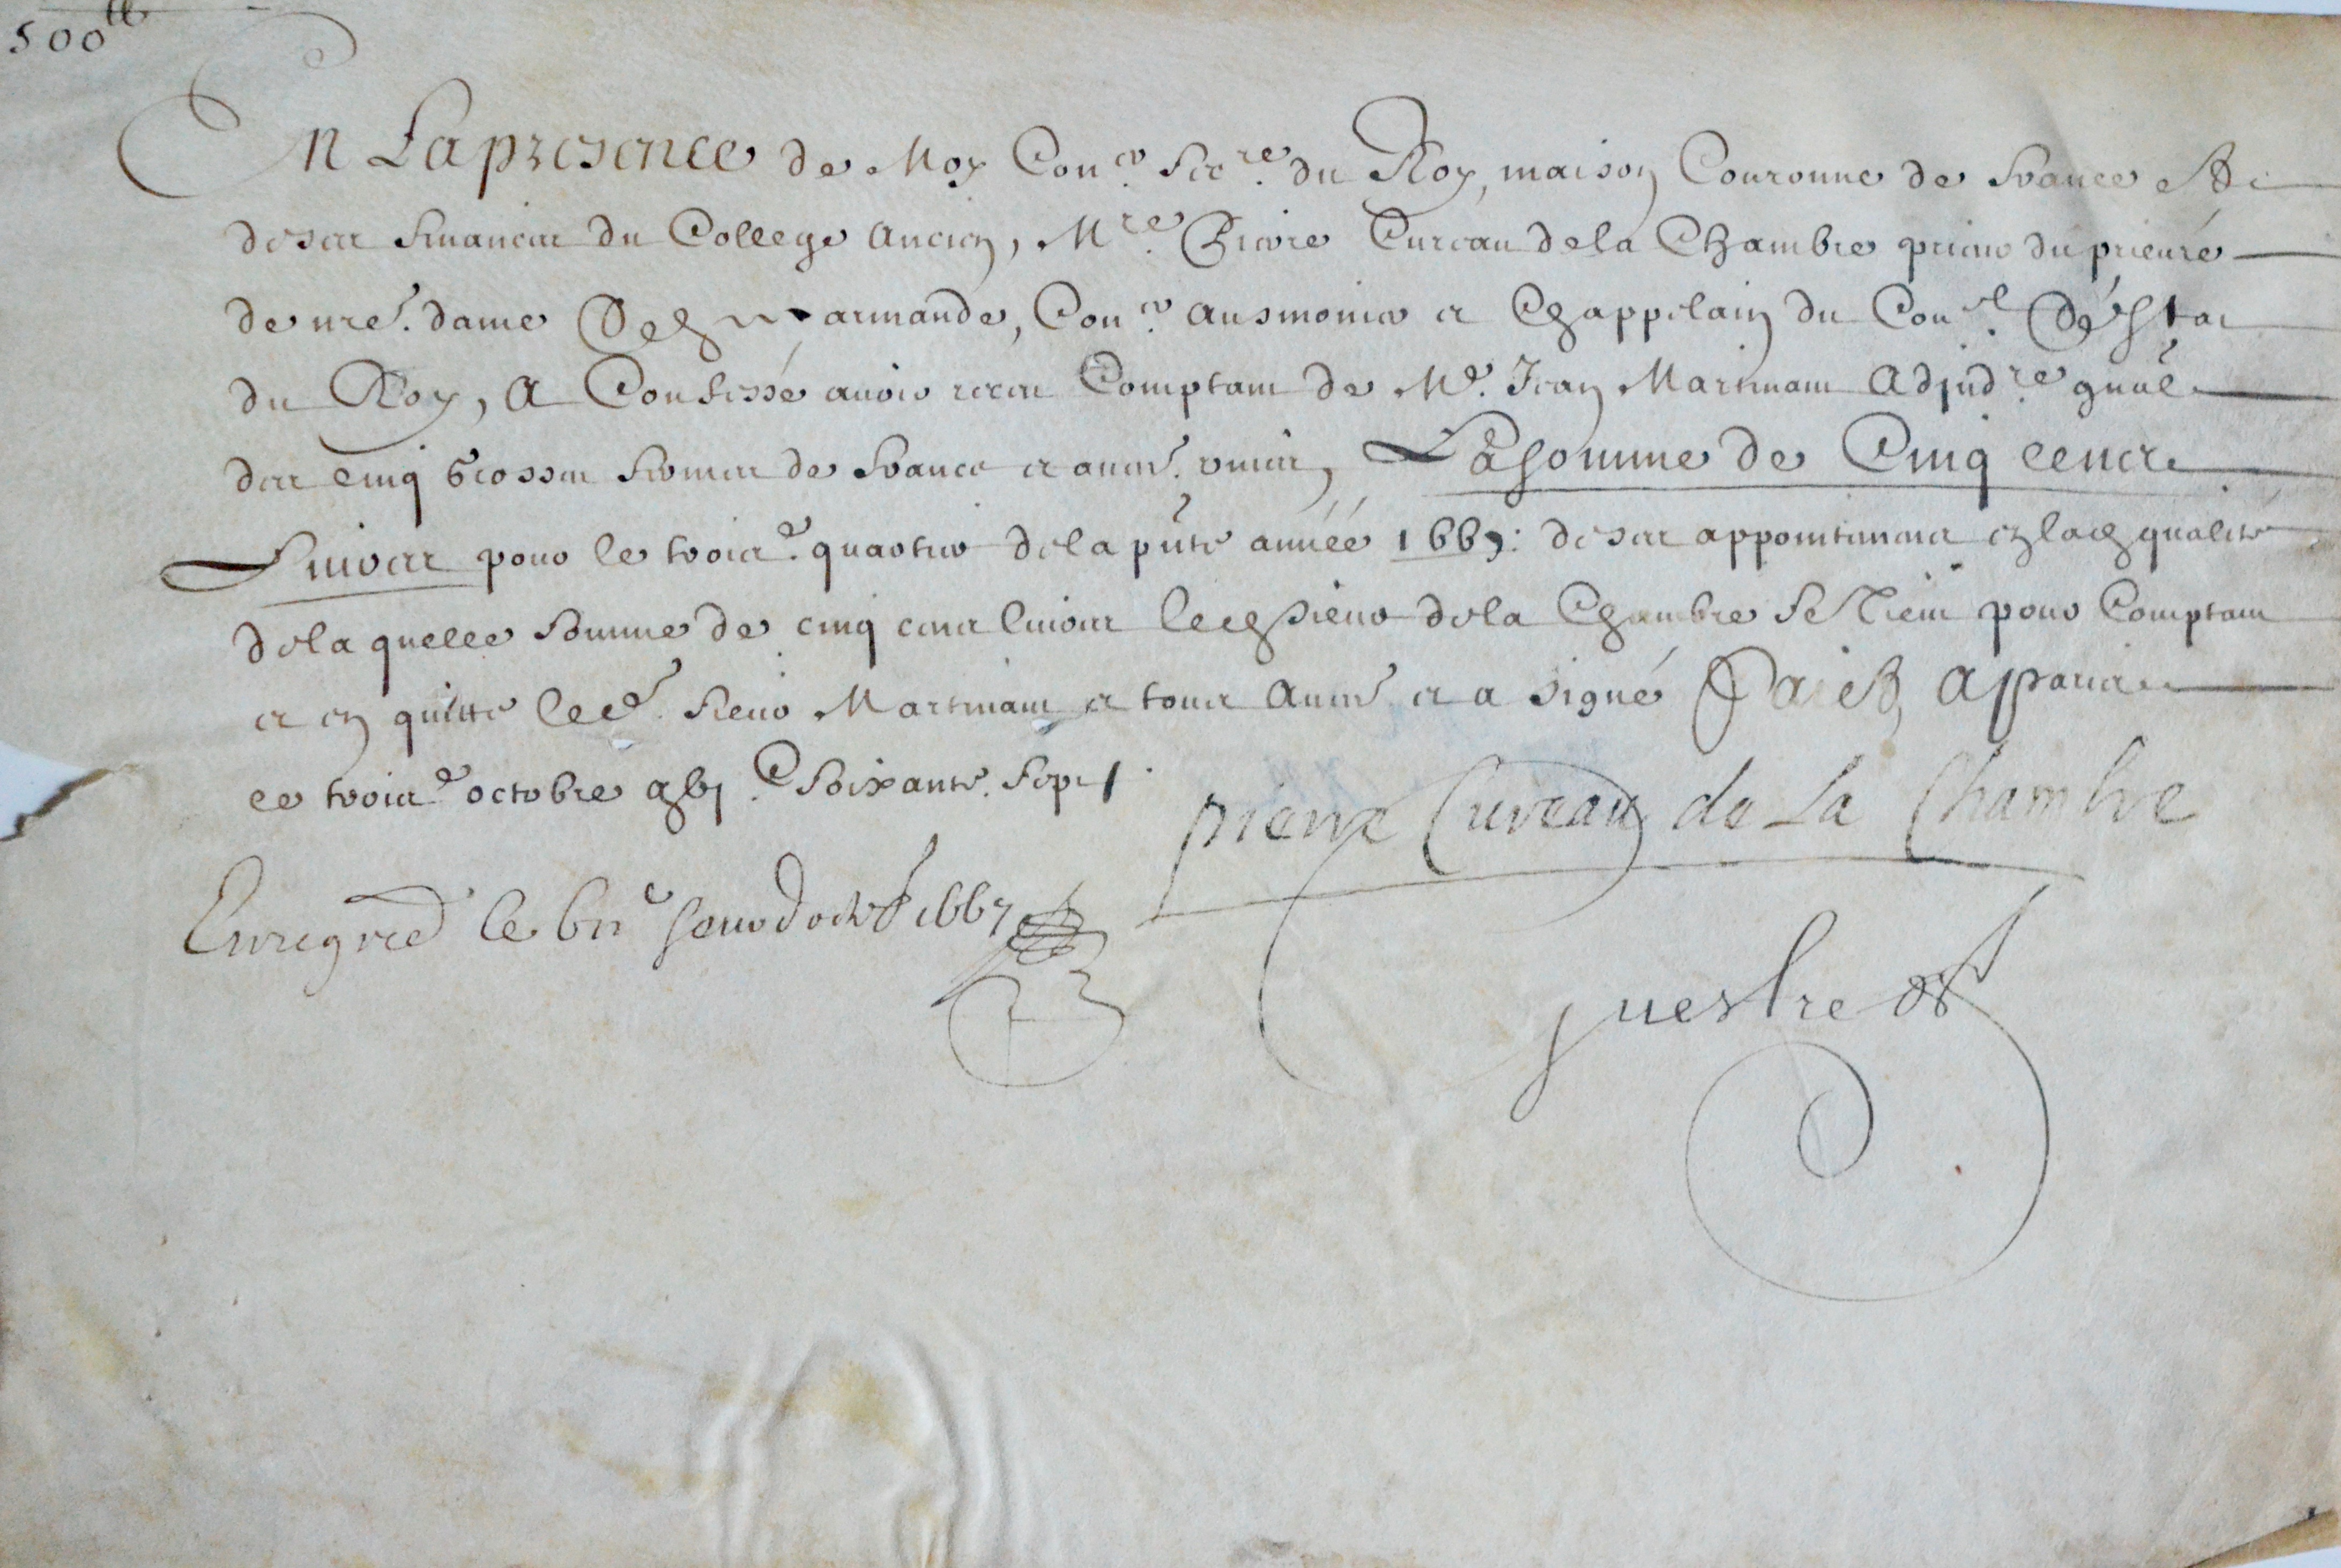 500ᵗᵗ
En La presence de Moy Con.er Secre. du Roy, maison Couronne de france &
de ses finances du College ancien, Mre. Pierre Cureau de la Chambre prieur du prieuré
de nre. dame armande, Con.er ausmonier et Chappelain du Con.el d'Estat
du Roy, A Confessé avoir receu Comptant de Me. Jean Martinant Adjudre. gnal
des cinq grosses fermes de france et autres. unies, La somme de Cinq cens
Livres pour le troise. quartier de la pnte année 1667: de ses appointemens en lad. qualité
de laquelle somme de cinq cens livres led. sieur de la Chambre se tient pour Comptant
et en quitte led. sieur Martinant et tous autres et a signé Faict a paris
le troise. octobre gbi. C Soixante. Sept.
pierre Cureau de La Chambre
Enregred le jour d'octobre 1667